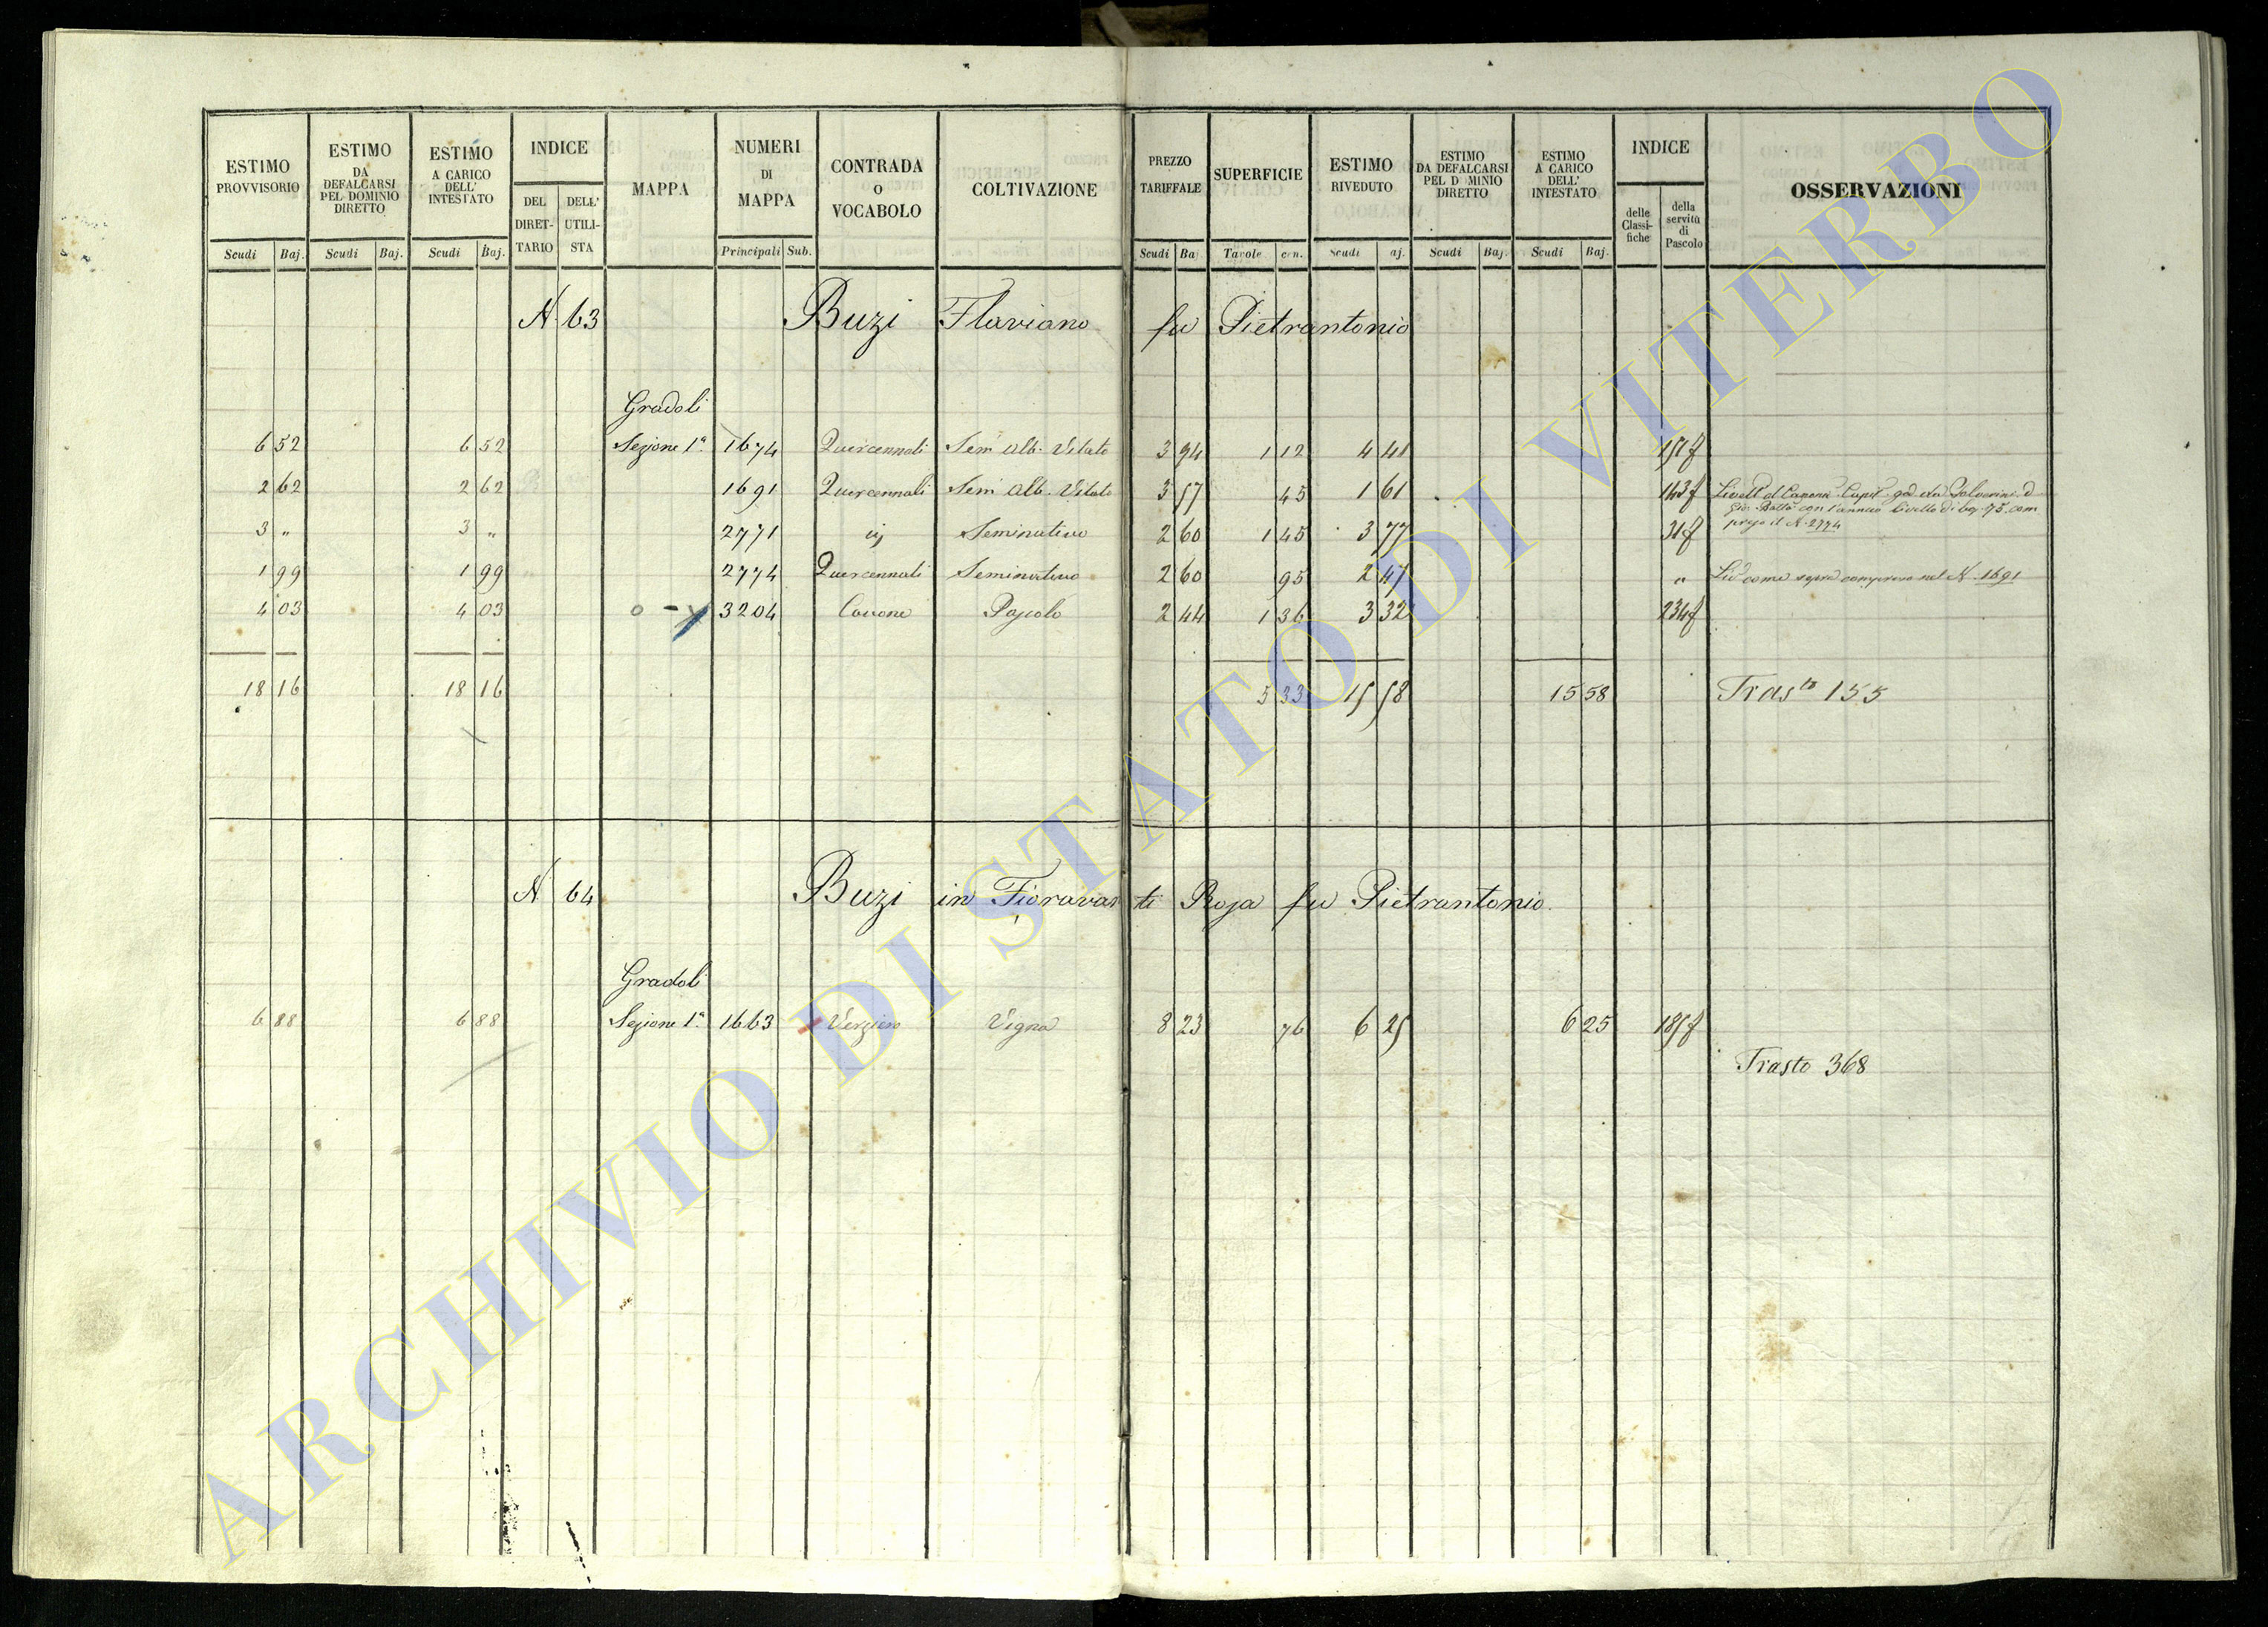 ESTIMO PROVVISORIO | ESTIMO DA DEFALCARSI PEL DOMINIO DIRETTO | ESTIMO A CARICO DELL' INTESTATO | INDICE | MAPPA | NUMERI DI MAPPA | CONTRADA O VOCABOLO | COLTIVAZIONE | PREZZO TARIFFALE | SUPERFICIE | ESTIMO RIVEDUTO | ESTIMO DA DEFALCARSI PEL D MINIO DIRETTO | ESTIMO A CARICO DELL' INTESTATO | INDICE | OSSERVAZIONI
DEL DIRETTARIO | DELL' UTILISTA | delle Classifiche | della servitù di Pascolo
Scudi | Baj. | Scudi | Baj. | Scudi | Baj. | Principali | Sub. | Scudi | Ba | Tavole | cen. | Scudi | aj. | Scudi | Baj. | Scudi | Baj.
N. 63 Buzi Flaviano fu Pietrantonio
Gradoli
6 52 | 6 52 | Sezione 1ª | 1674 | Quercennali | Sem. alb. Vitato | 3 94 | 1 12 | 4 41 | 151 f
2 62 | 2 62 | 1691 | Quercennali | Sem. alb. Vitato | 3 57 | 45 | 1 61 | 143 f
Gio. Batta con l'annuo livello di baj. 75 com
3 „ | 3 „ | 2771 | Seminativo | 2 60 | 1 45 | 3 77 | 31 f | preso il N. 2774
1 99 | 1 99 | 2774 | Quercennali | Seminativo | 2 60 | 95 | 2 47 | „ | come sopra compreso nel N. 1691
4 03 | 4 03 | 3204 | Cavone | Pascolo | 2 44 | 1 36 | 3 32 | 234 f
18 16 | 18 16 | 5 33 | 15 58 | 15 58 | Trasto 155
N 64 Buzi in Fioravanti Rosa fu Pietrantonio
Gradoli
6 88 | 6 88 | Sezione 1ª | 1663 | Verziere | Vigna | 8 23 | 76 | 6 25 | 6 25 | 185 f
Trasto 368
ARCHIVIO DI STATO DI VITERBO